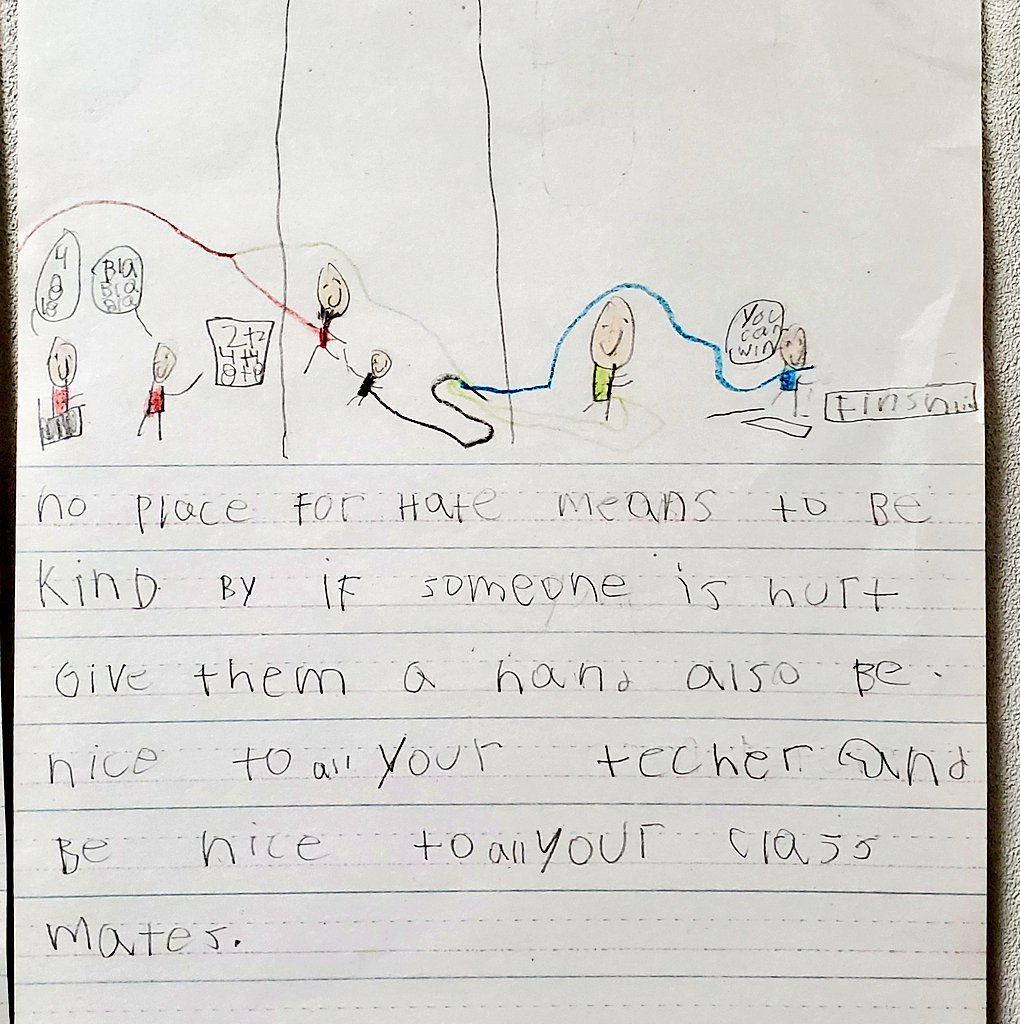 4
8
16
Bla
Bla
Bla
2+2
4+4
8+8
You
can
win
Finsh
no place For Hate means to Be
Kind By iF someone is hurt
Give them a hand also Be.
nice to all your techer and
Be nice to all your class
mates.